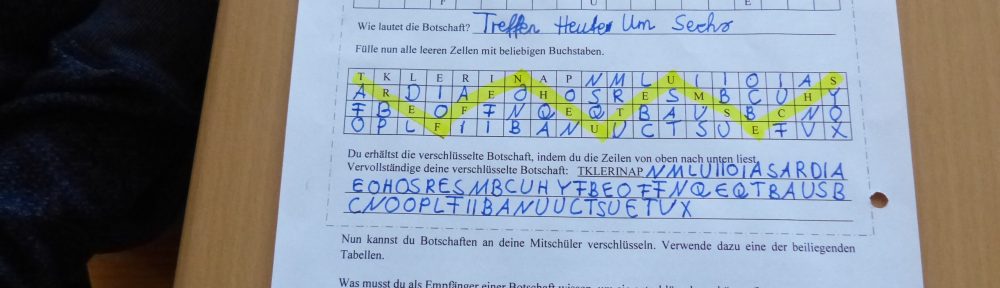 Wie lautet die Botschaft? Treffen Heute Um Sechs
Fülle nun alle leeren Zellen mit beliebigen Buchstaben.
T K L E R I N A P N M L U I I O I A S
A R D I A E O H O S R E S M B C U H Y
F B E O F F N Q E Q T B A U S B C N O
O P L F I I B A N U U C T S U E F V X
Du erhältst die verschlüsselte Botschaft, indem du die Zeilen von oben nach unten liest.
Vervollständige deine verschlüsselte Botschaft: TKLERINAP NMLUIIOIASARDIA
EOHOSRESMBCUHYFBEOFFNQEQTBAUSB
CNOOPLFIIBANUUCTSUETVX
Nun kannst du Botschaften an deine Mitschüler verschlüsseln. Verwende dazu eine der beiliegenden
Tabellen.
Was musst du als Empfänger einer Botschaft wissen, um